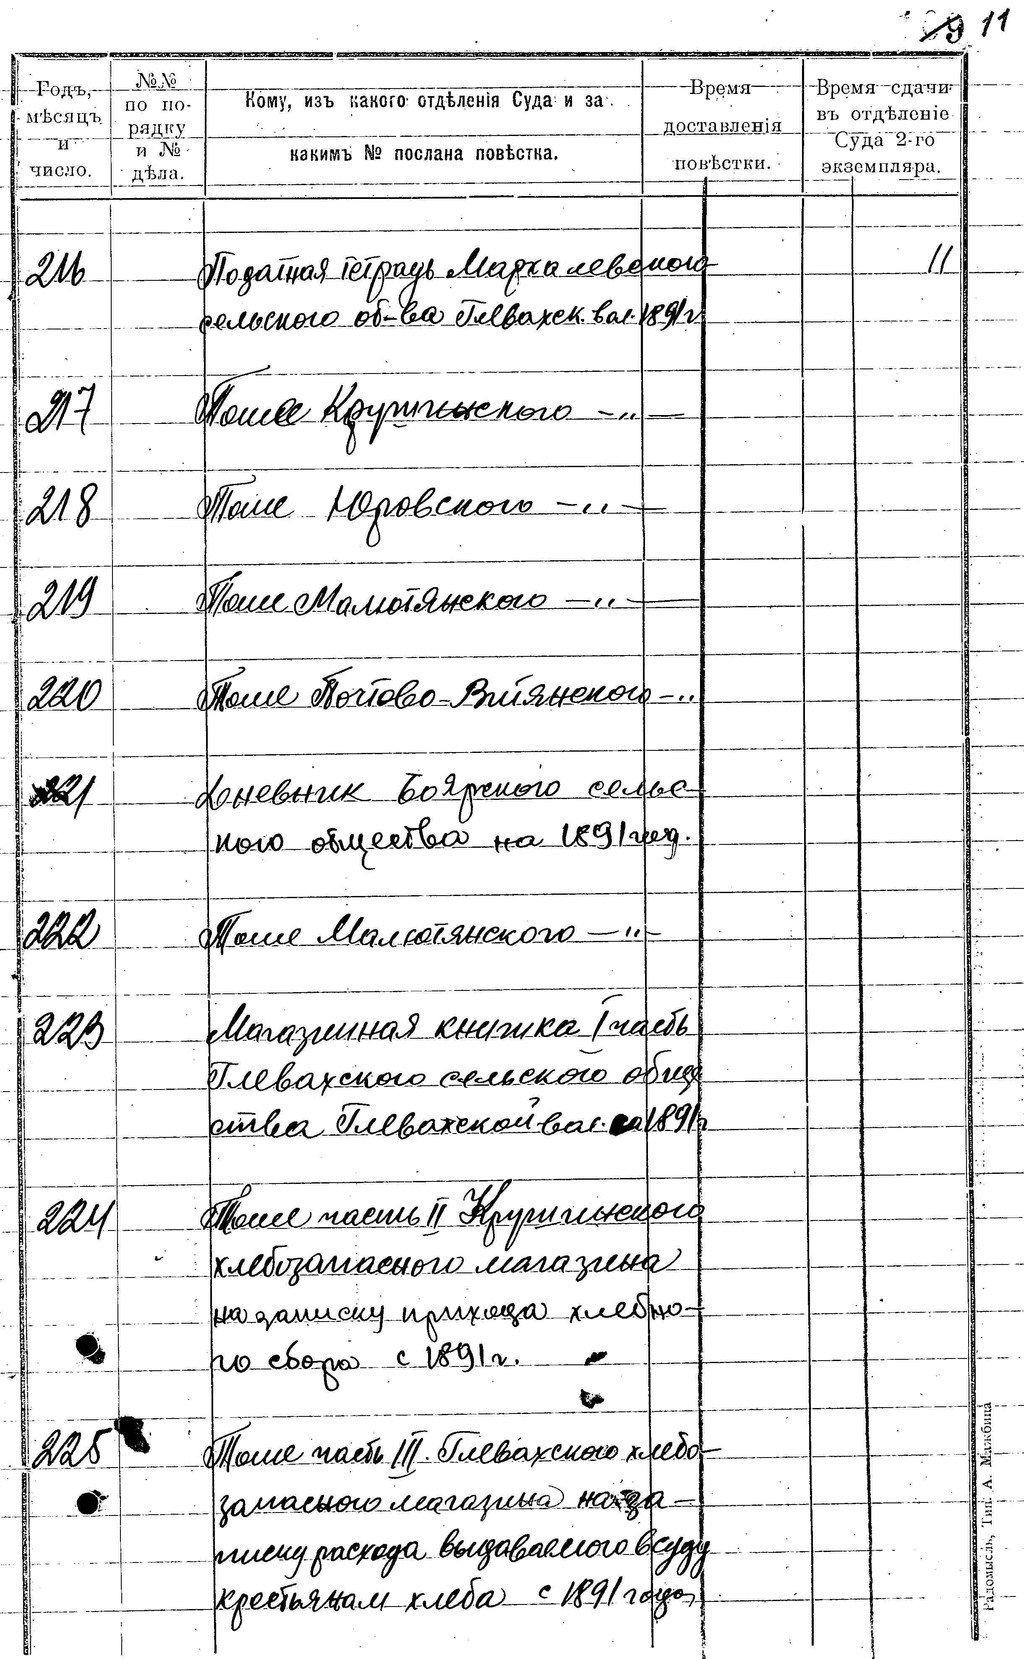 11
Годъ, мѣсяцъ и число.
№№ по по-рядку и № дѣла.
Кому, изъ какого отдѣленія Суда и за какимъ № послана повѣстка.
Время доставленія повѣстки.
Время сдачи въ отдѣленіе Суда 2-го экземпляра.
216 Податная тетрадь Мархалевского 11
сельского об-ва Глевахск. вол. 1891 г
217 Тоже Кружчынского —〃—
218 Тоже Юровского —〃—
219 Тоже Малютянского —〃—
220 Тоже Почтово-Витянского —〃
221 Дневник Боярского сельс
кого общества на 1891 год.
222 Тоже Малютянского —〃—
223 Магазинная книжка I часть
Глевахского сельского обще
ства Глевахской вол. 1891 г
224 Тоже часть II Кружчынского
хлебозапасного магазина
на записку прихода хлебно-
го сбора с 1891 г.
225 Тоже часть III. Глевахского хлебо-
запасного магазина на за-
писку расхода выдаваемого в суду
крестьянам хлеба с 1891 года
Радомысль, Тип. А. Мижбица